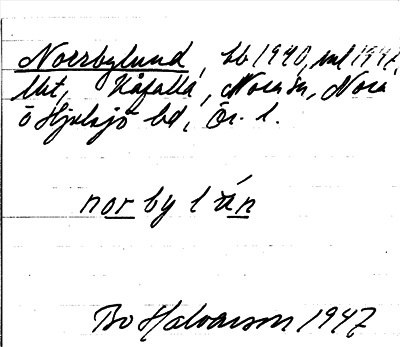 Norrbylund, bb 1940, ml 1947,
lht, Kåfalla, Nora sn, Nora
o Hjulsjö bd, Ör. l.
norbylán
Bo Halvarson 1947